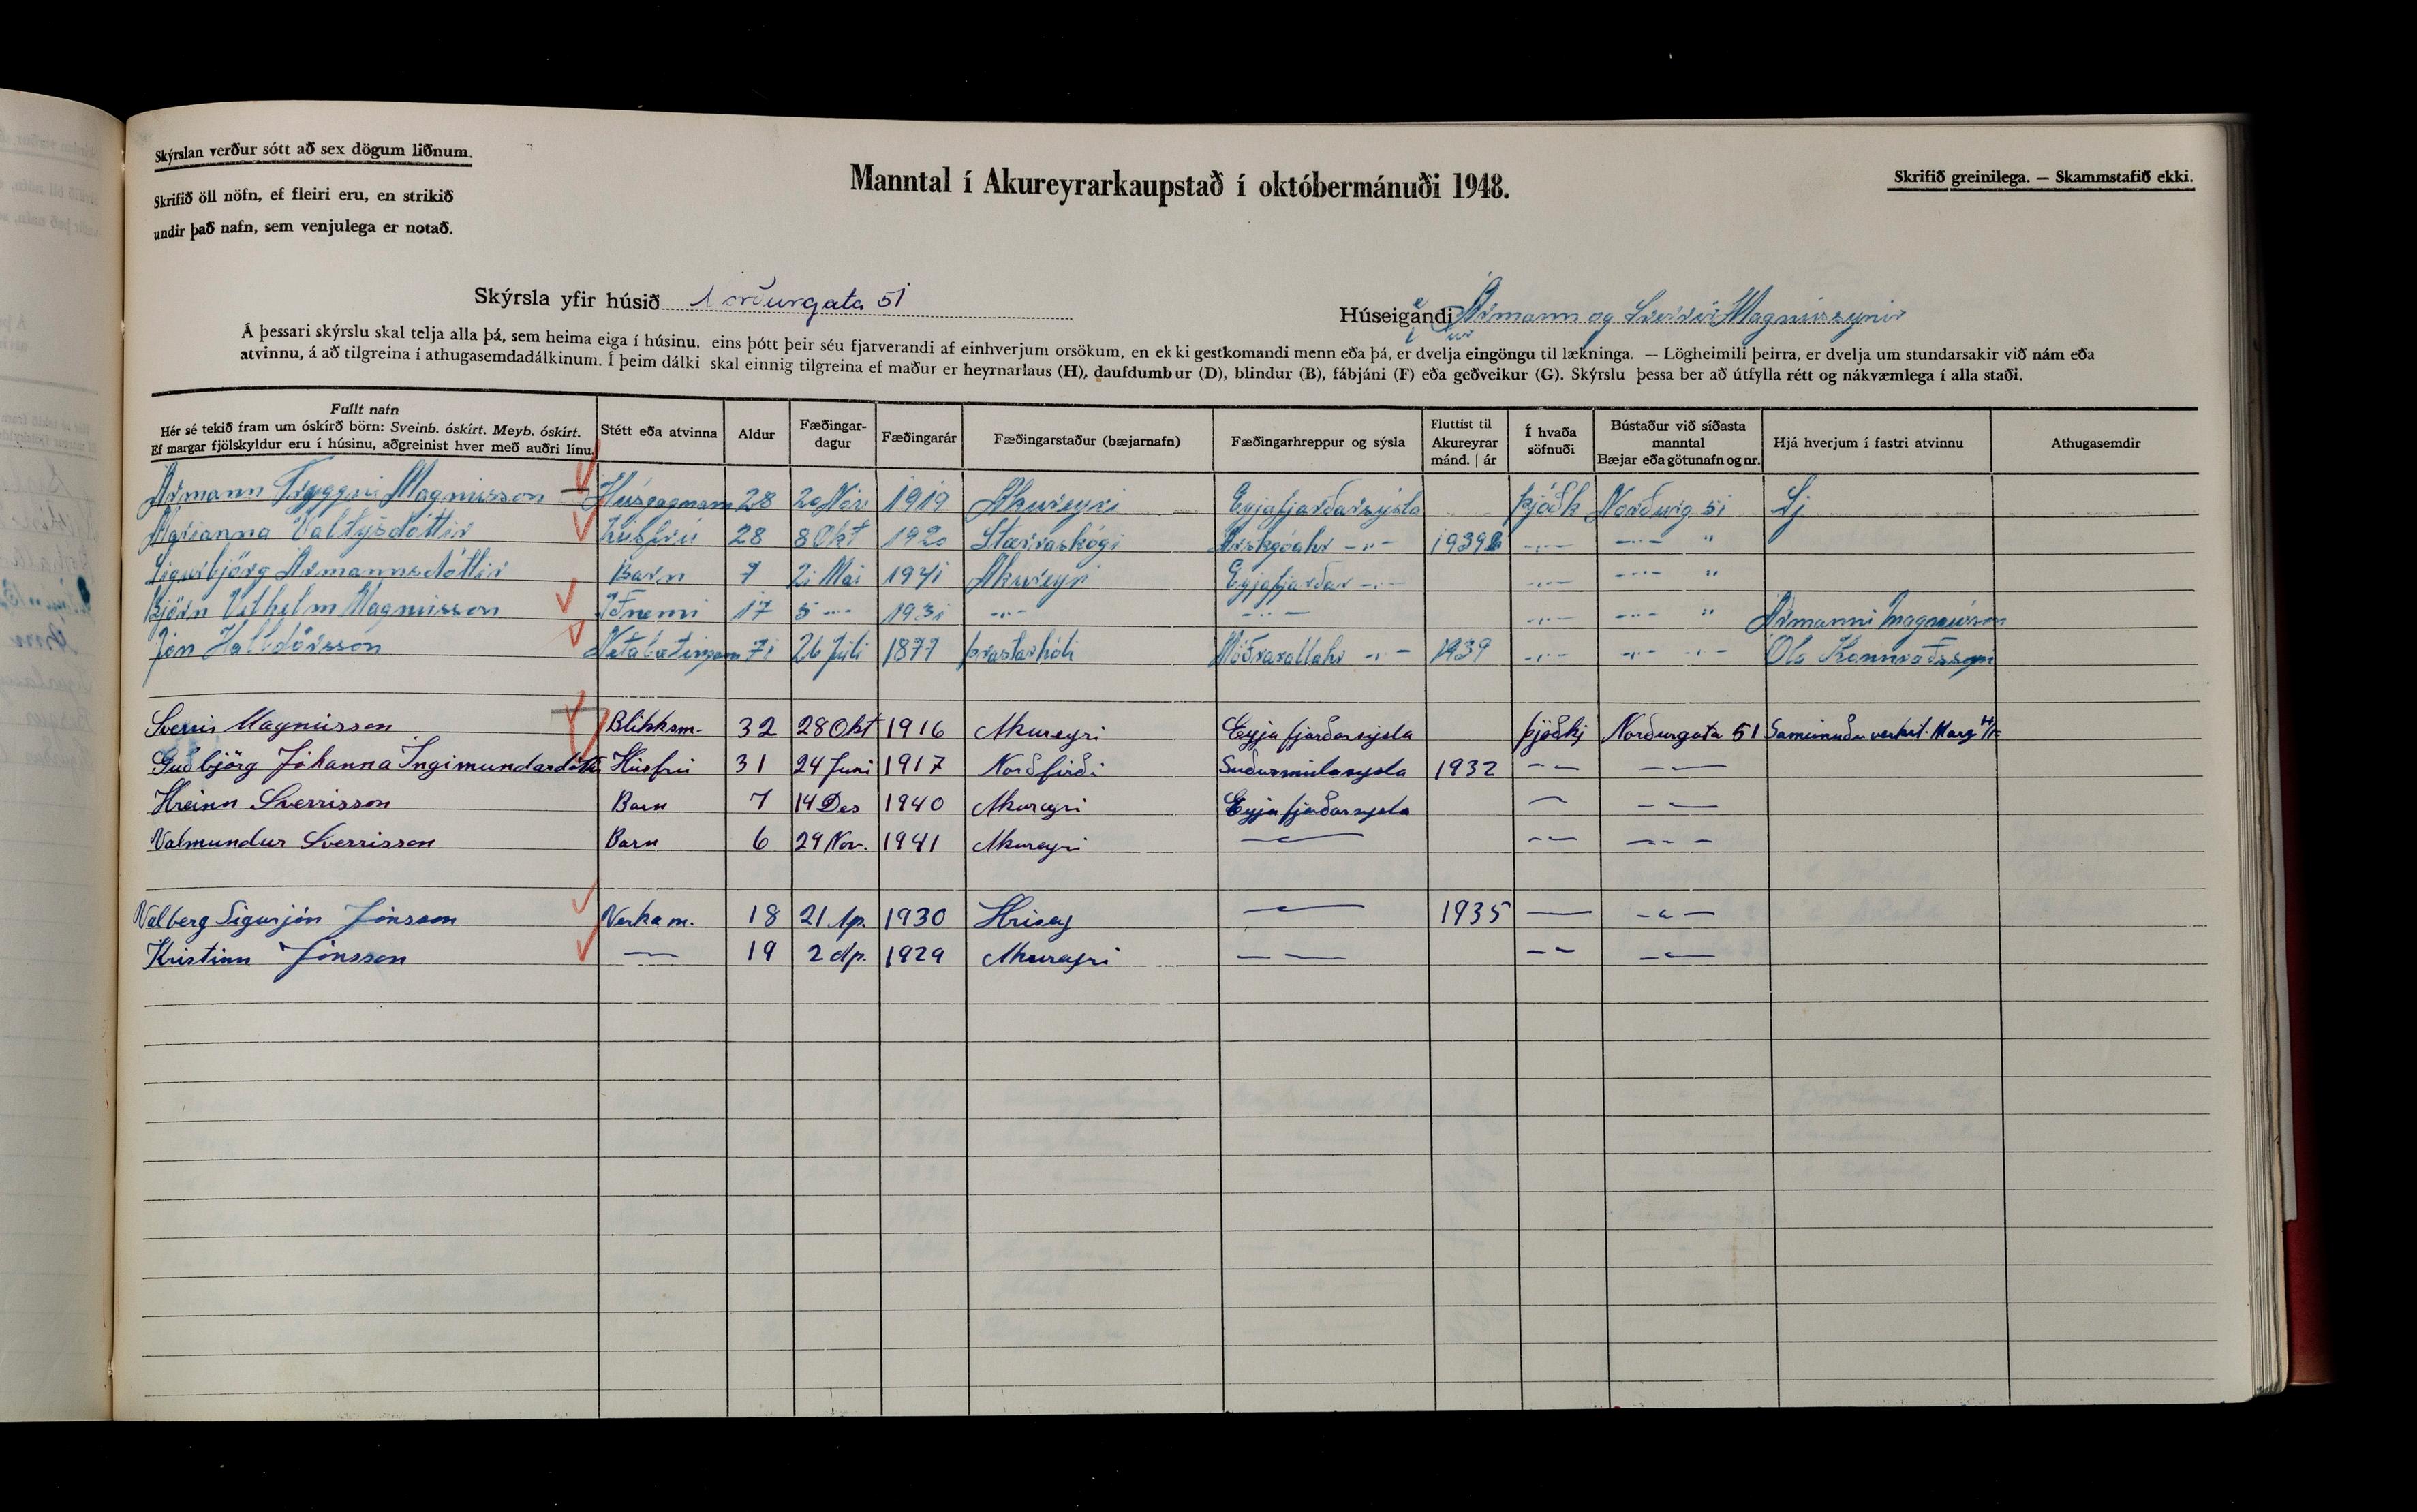 Skýrslan verður sótt að sex dögum liðnum.
Skrifið öll nöfn, ef fleiri eru, en strikið
undir það nafn, sem venjulega er notað.
Manntal í Akureyrarkaupstað í októbermánuði 1948.
Skrifið greinilega. — Skammstafið ekki.
Skýrsla yfir húsið Norðurgata 51
Húseigandi Ármann og Sverrir Magnússynir
Á þessari skýrslu skal telja alla þá, sem heima eiga í húsinu, eins þótt þeir séu fjarverandi af einhverjum orsökum, en ekki gestkomandi menn eða þá, er dvelja eingöngu til lækninga. — Lögheimili þeirra, er dvelja um stundarsakir við nám eða
atvinnu, á að tilgreina í athugasemdadálkinum. Í þeim dálki skal einnig tilgreina ef maður er heyrnarlaus (H), daufdumbur (D), blindur (B), fábjáni (F) eða geðveikur (G). Skýrslu þessa ber að útfylla rétt og nákvæmlega í alla staði.
Fullt nafn
Hér sé tekið fram um óskírð börn: Sveinb. óskírt. Meyb. óskírt.
Ef margar fjölskyldur eru í húsinu, aðgreinist hver með auðri línu.
Stétt eða atvinna
Aldur
Fæðingar-
dagur
Fæðingarár
Fæðingarstaður (bæjarnafn)
Fæðingarhreppur og sýsla
Fluttist til
Akureyrar
mánd. | ár
Í hvaða
söfnuði
Bústaður við síðasta
manntal
Bæjar eða götunafn og nr.
Hjá hverjum í fastri atvinnu
Athugasemdir
Ármann Tryggvi Magnússon Húsgagnam 28 20 Nóv 1919 Akureyri Eyjafjarðarsýsla þjóðk Norðurg 51 Sj
Marianna Valtýsdóttir Húsfrú 28 8 Okt 1920 Stærraskógi Árskgóahr -"- 1939 -"- -"- "
Sigurbjörg Ármannsdóttir Barn 7 21 Mai 1941 Akureyri Eyjafjarðar -"- -"- -"- "
Björn Vilhelm Magnússon Iðnemi 17 5 -"- 1931 -"- -"- -"- -"- " Ármanni Magnússon
Jón Halldórsson Netabætingam 71 26 Júli 1877 Þrastarhóli Möðruvallahr -"- 1939 -"- -"- -"- Óla Konnráðssyni
Sverrir Magnússon Blikksm. 32 28 Okt 1916 Akureyri Eyjafjarðarsýsla þjóðkj Norðurgata 51
Guðbjörg Jóhanna Ingimundardóttir Húsfrú 31 24 Juni 1917 Norðfirði Suðurmúlasysla 1932 — — — —
Hreinn Sverrisson Barn 7 14 Des 1940 Akureyri Eyjafjarðarsysla — — —
Valmundur Sverrisson Barn 6 29 Nov. 1941 Akureyri — — — — — —
Valberg Sigurjón Jónsson Verkam. 18 21 Ap. 1930 Hrisey — 1935 — -"-
Kristinn Jónsson — 19 2 Ap. 1929 Akureyri — — — — — —